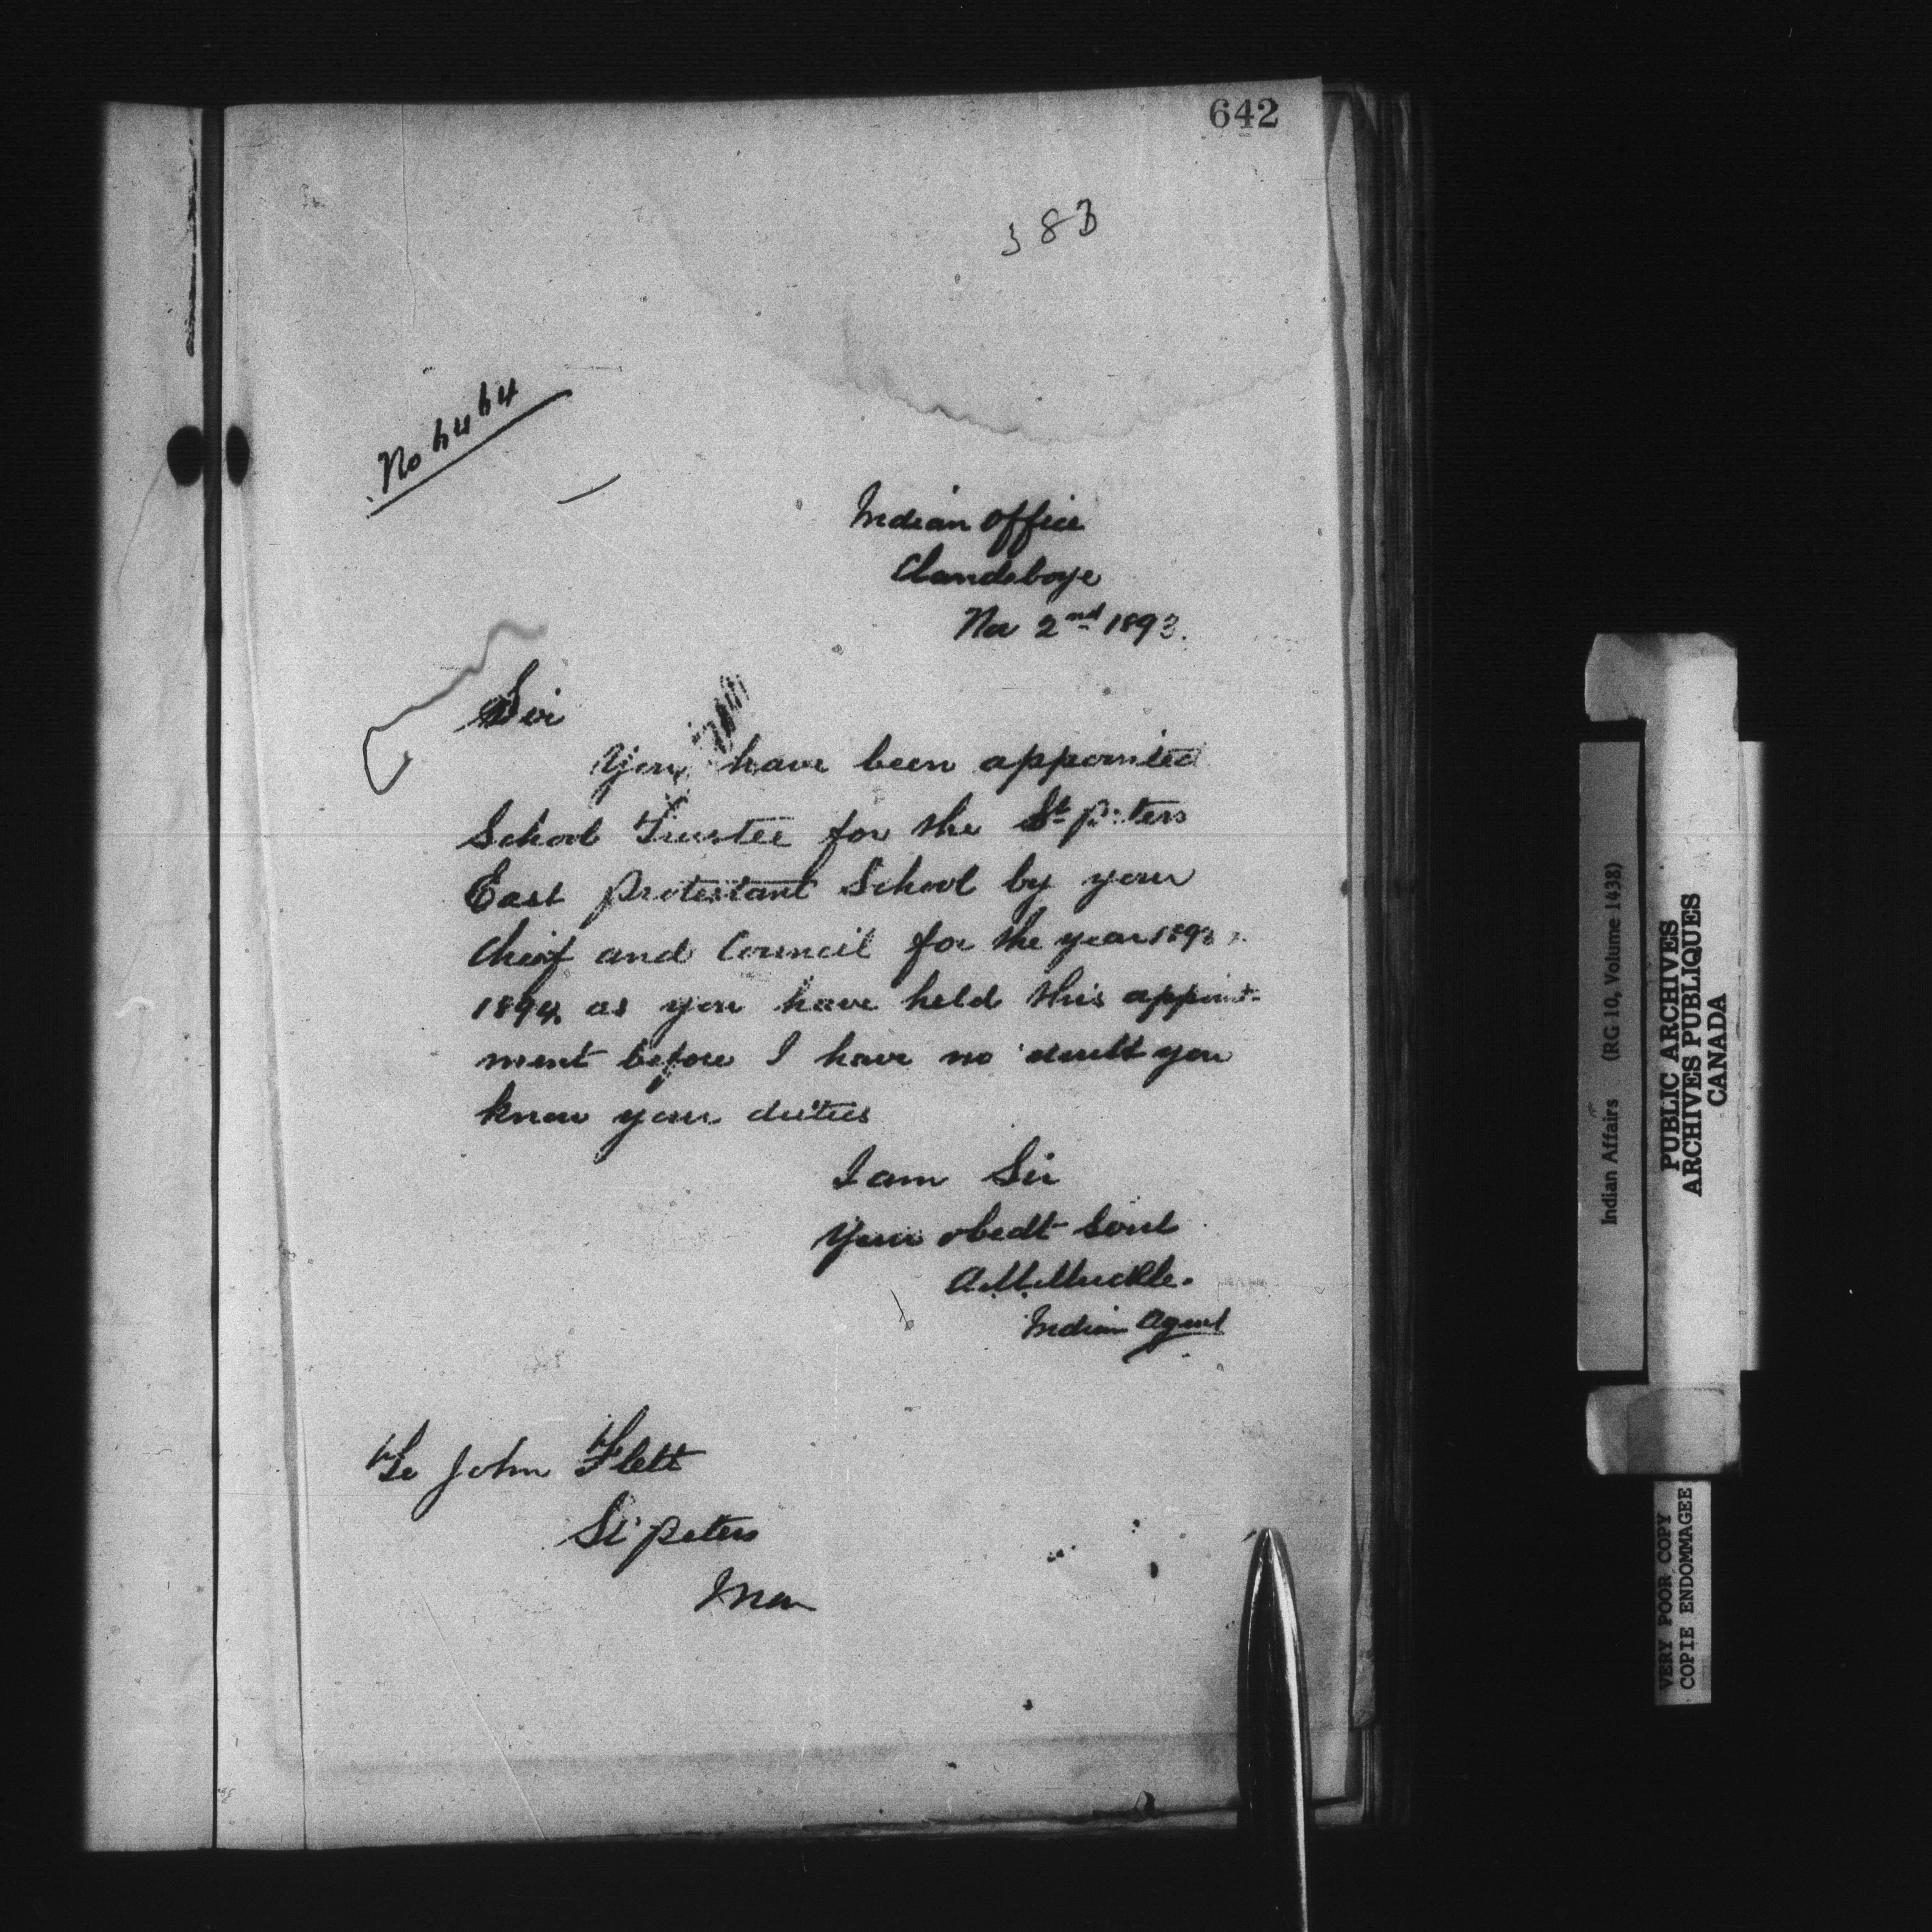 642
383
No 6464
Indian Office
Clandeboye
Nov 2nd 1893.
Sir
You have been appointed
School Trustee for the St. Peters
East Protestant School by your
Chief and Council for the year 1893.
1894. as you have held this appoint-
ment before I have no doubt you
know your duties
I am Sir
Your obedt Servt
A. M. Muckle.
Indian Agent
To John Flett
St Peters
Man
Indian Affairs (RG 10, Volume 1438)
PUBLIC ARCHIVES
ARCHIVES PUBLIQUES
CANADA
VERY POOR COPY
COPIE ENDOMMAGEE